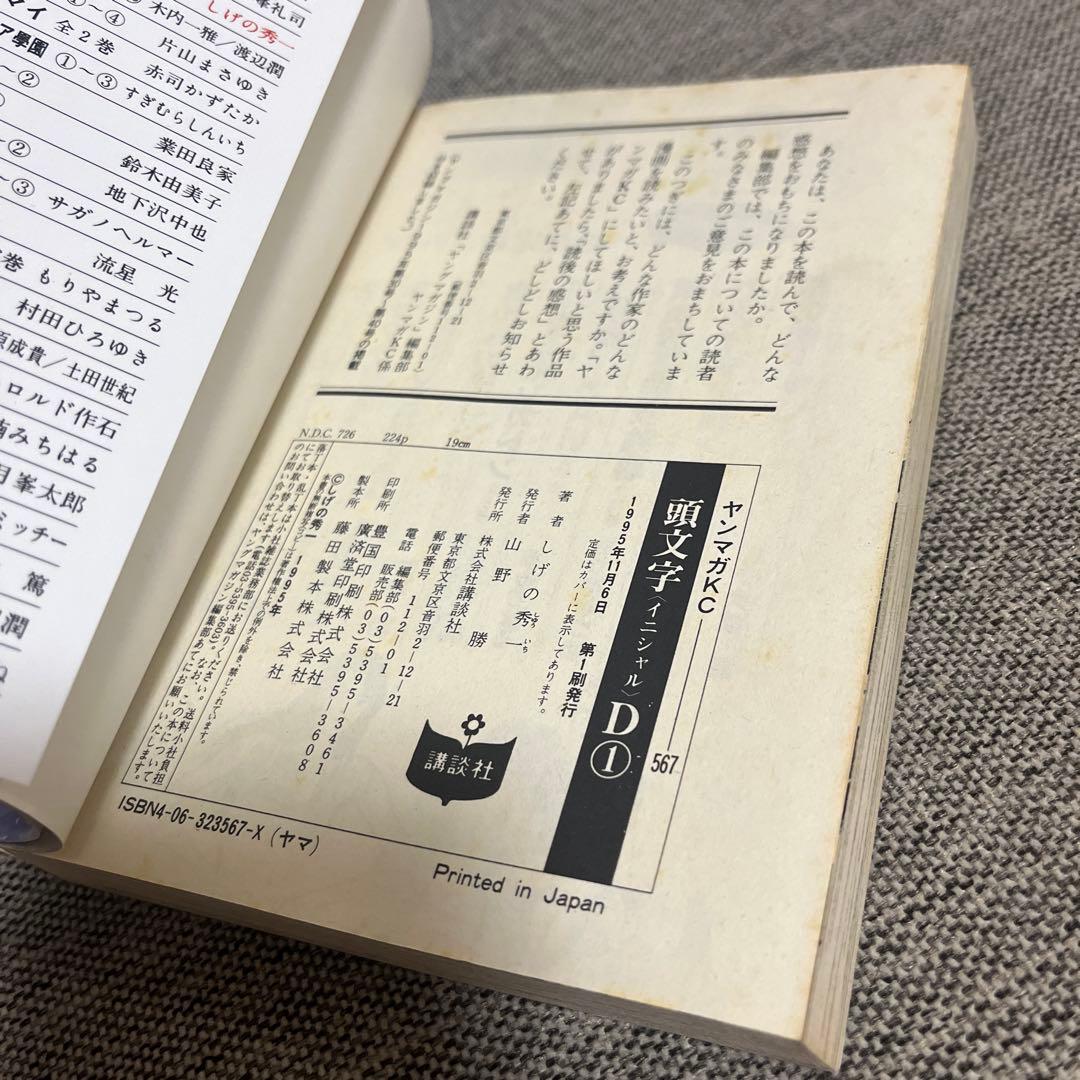 しげの秀一
木内一雅/渡辺潤
マイ 全2巻 片山まさゆき
赤司かずたか
ア學園 ①〜③ すぎむらしんいち
業田良家
鈴木由美子
地下沢中也
サガノヘルマー
流星 光
もりやまつる
村田ひろゆき
原成貴/土田世紀
ロルド作石
みちはる
峯太郎
ミッチー
篤
潤
あなたは、この本を読んで、どんな
感想をおもちになりましたか。
編集部では、この本についての読者
のみなさまのご意見をおまちしていま
す。
このつぎには、どんな作家のどんな
漫画を読みたいと、お考えですか。「ヤ
ンマガKC」にしてほしいと思う作品
がありましたら、「読後の感想」とあわ
せて、左記あてに、どしどしお知らせ
ください。
東京都文京区音羽2-12-21
(郵便番号112-01)
講談社「ヤングマガジン」編集部
ヤンマガKC係
N.D.C. 726 224p 19cm
ヤンマガKC 567
頭文字〈イニシャル〉D①
1995年11月6日 第1刷発行
定価はカバーに表示してあります。
著者 しげの秀一
しゅう いち
発行者 山野 勝
発行所 株式会社講談社
東京都文京区音羽2-12-21
郵便番号 112-01
電話 編集部(03)5395-3461
販売部(03)5395-3608
印刷所 豊国印刷株式会社
廣済堂印刷株式会社
製本所 藤田製本株式会社
©しげの秀一 1995年
講談社
ISBN4-06-323567-X (ヤマ)
Printed in Japan